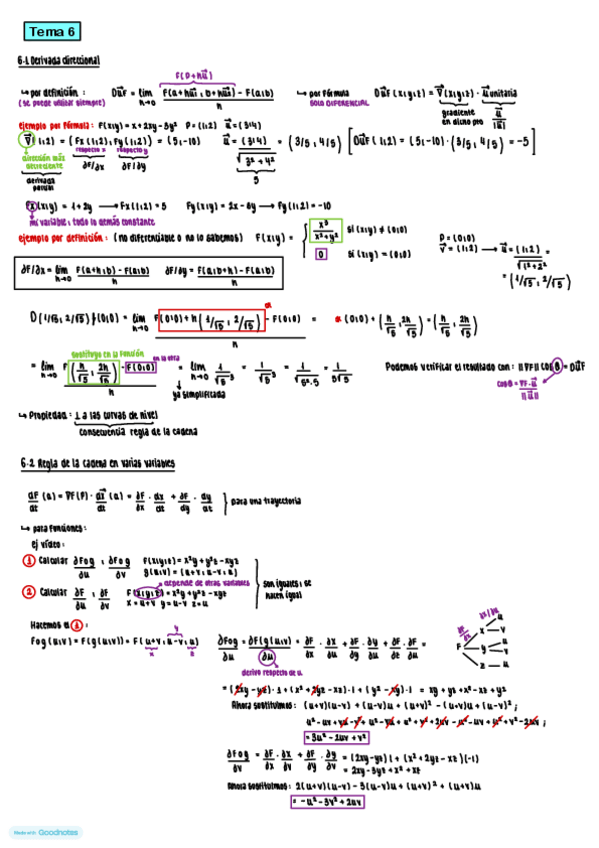 Tema 6
6.1 Derivada direccional
F(P+hu⃗)
↳ por definición : Du⃗F = lim h→0 F(a+hu⃗₁, b+hu⃗₂) - F(a,b) / h
(se puede utilizar siempre)
↳ por fórmula Du⃗F(x,y,z) = ∇⃗(x,y,z) · u⃗ unitaria
SOLO DIFERENCIAL
gradiente en dicho pto
u⃗ / |u⃗|
ejemplo por fórmula : F(x,y) = x+2xy-3y² P=(1,2) u⃗=(3,4)
∇⃗(1,2) = (Fx(1,2), Fy(1,2)) = (5,-10) u⃗ = (3,4) / √3²+4² = (3/5, 4/5) [Du⃗F(1,2) = (5,-10)·(3/5, 4/5) = -5]
respecto x respecto y
dirección más
∂F/∂x ∂F/∂y 5
derivada parcial
Fx(x,y) = 1+2y → Fx(1,2) = 5 Fy(x,y) = 2x-6y → Fy(1,2) = -10
mi variable, todo lo demás constante
ejemplo por definición : (no diferenciable o no lo sabemos) F(x,y) = { x³ / x²+y² si (x,y) ≠ (0,0)
0 si (x,y) = (0,0)
P=(0,0)
v⃗=(1,2) → u⃗ = (1,2) / √1²+2² =
= (1/√5, 2/√5)
∂F/∂x = lim h→0 F(a+h,b) - F(a,b) / h ∂F/∂y = F(a,b+h) - F(a,b) / h
D(1/√5, 2/√5)F(0,0) = lim h→0 F(0,0)+h(1/√5, 2/√5) - F(0,0) / h = (0,0) + (h/√5, 2h/√5) = (h/√5, 2h/√5)
sustituyo en la función
en la otra
= lim h→0 F(h/√5, 2h/√5) - F(0,0) / h = lim h→0 1/√5³ = 1/√5³ = 1/√5².5 = 1/5√5
ya simplificada
Podemos verificar el resultado con : ||∇F|| cos θ = Du⃗F
cos θ = ∇F·u⃗ / ||u⃗||
↳ Propiedad : ⊥ a las curvas de nivel
consecuencia regla de la cadena
6.2 Regla de la cadena en varias variables
dF/dt (a) = ∇F(P) · dx⃗/dt (a) = ∂F/∂x · dx/dt + ∂F/∂y · dy/dt } para una trayectoria
↳ para funciones :
ej vídeo :
1 Calcular ∂Fog/∂u, ∂Fog/∂v F(x,y,z) = x²y+y²z-xyz
g(u,v) = (u+v, u-v, u)
depende de otras variables
2 Calcular ∂F/∂u, ∂F/∂v F(x,y,z) = x²y+y²z-xyz
x=u+v y=u-v z=u
son iguales, se hacen igual
Hacemos el 1 :
Fog(u,v) = F(g(u,v)) = F(u+v, u-v, u)
x y z
∂Fog/∂u = ∂F(g(u,v))/∂u = ∂F/∂x · ∂x/∂u + ∂F/∂y · ∂y/∂u + ∂F/∂z · ∂z/∂u =
derivo respecto de u
∂F/∂x ∂x/∂u
F x y z u v u v u
= (2xy-yz)·1 + (x²+2yz-xz)·1 + (y²-xy)·1 = xy+yz+x²-xz+y²
Ahora sustituimos : (u+v)(u-v) + (u-v)u + (u+v)² - (u+v)u + (u-v)² ;
u²-uv+uv-v²+u²-uv+u²+v²+2uv-u²-uv+u²+v²-2uv ;
= 3u²-2uv+v²
∂Fog/∂v = ∂F/∂x · ∂x/∂v + ∂F/∂y · ∂y/∂v = (2xy-yz)1 + (x²+2yz-xz)(-1)
= 2xy-3yz+x²+xz
Ahora sustituimos : 2(u+v)(u-v) - 3(u-v)u + (u+v)² + (u+v)u
= -u²-3v²+2uv
Made with Goodnotes